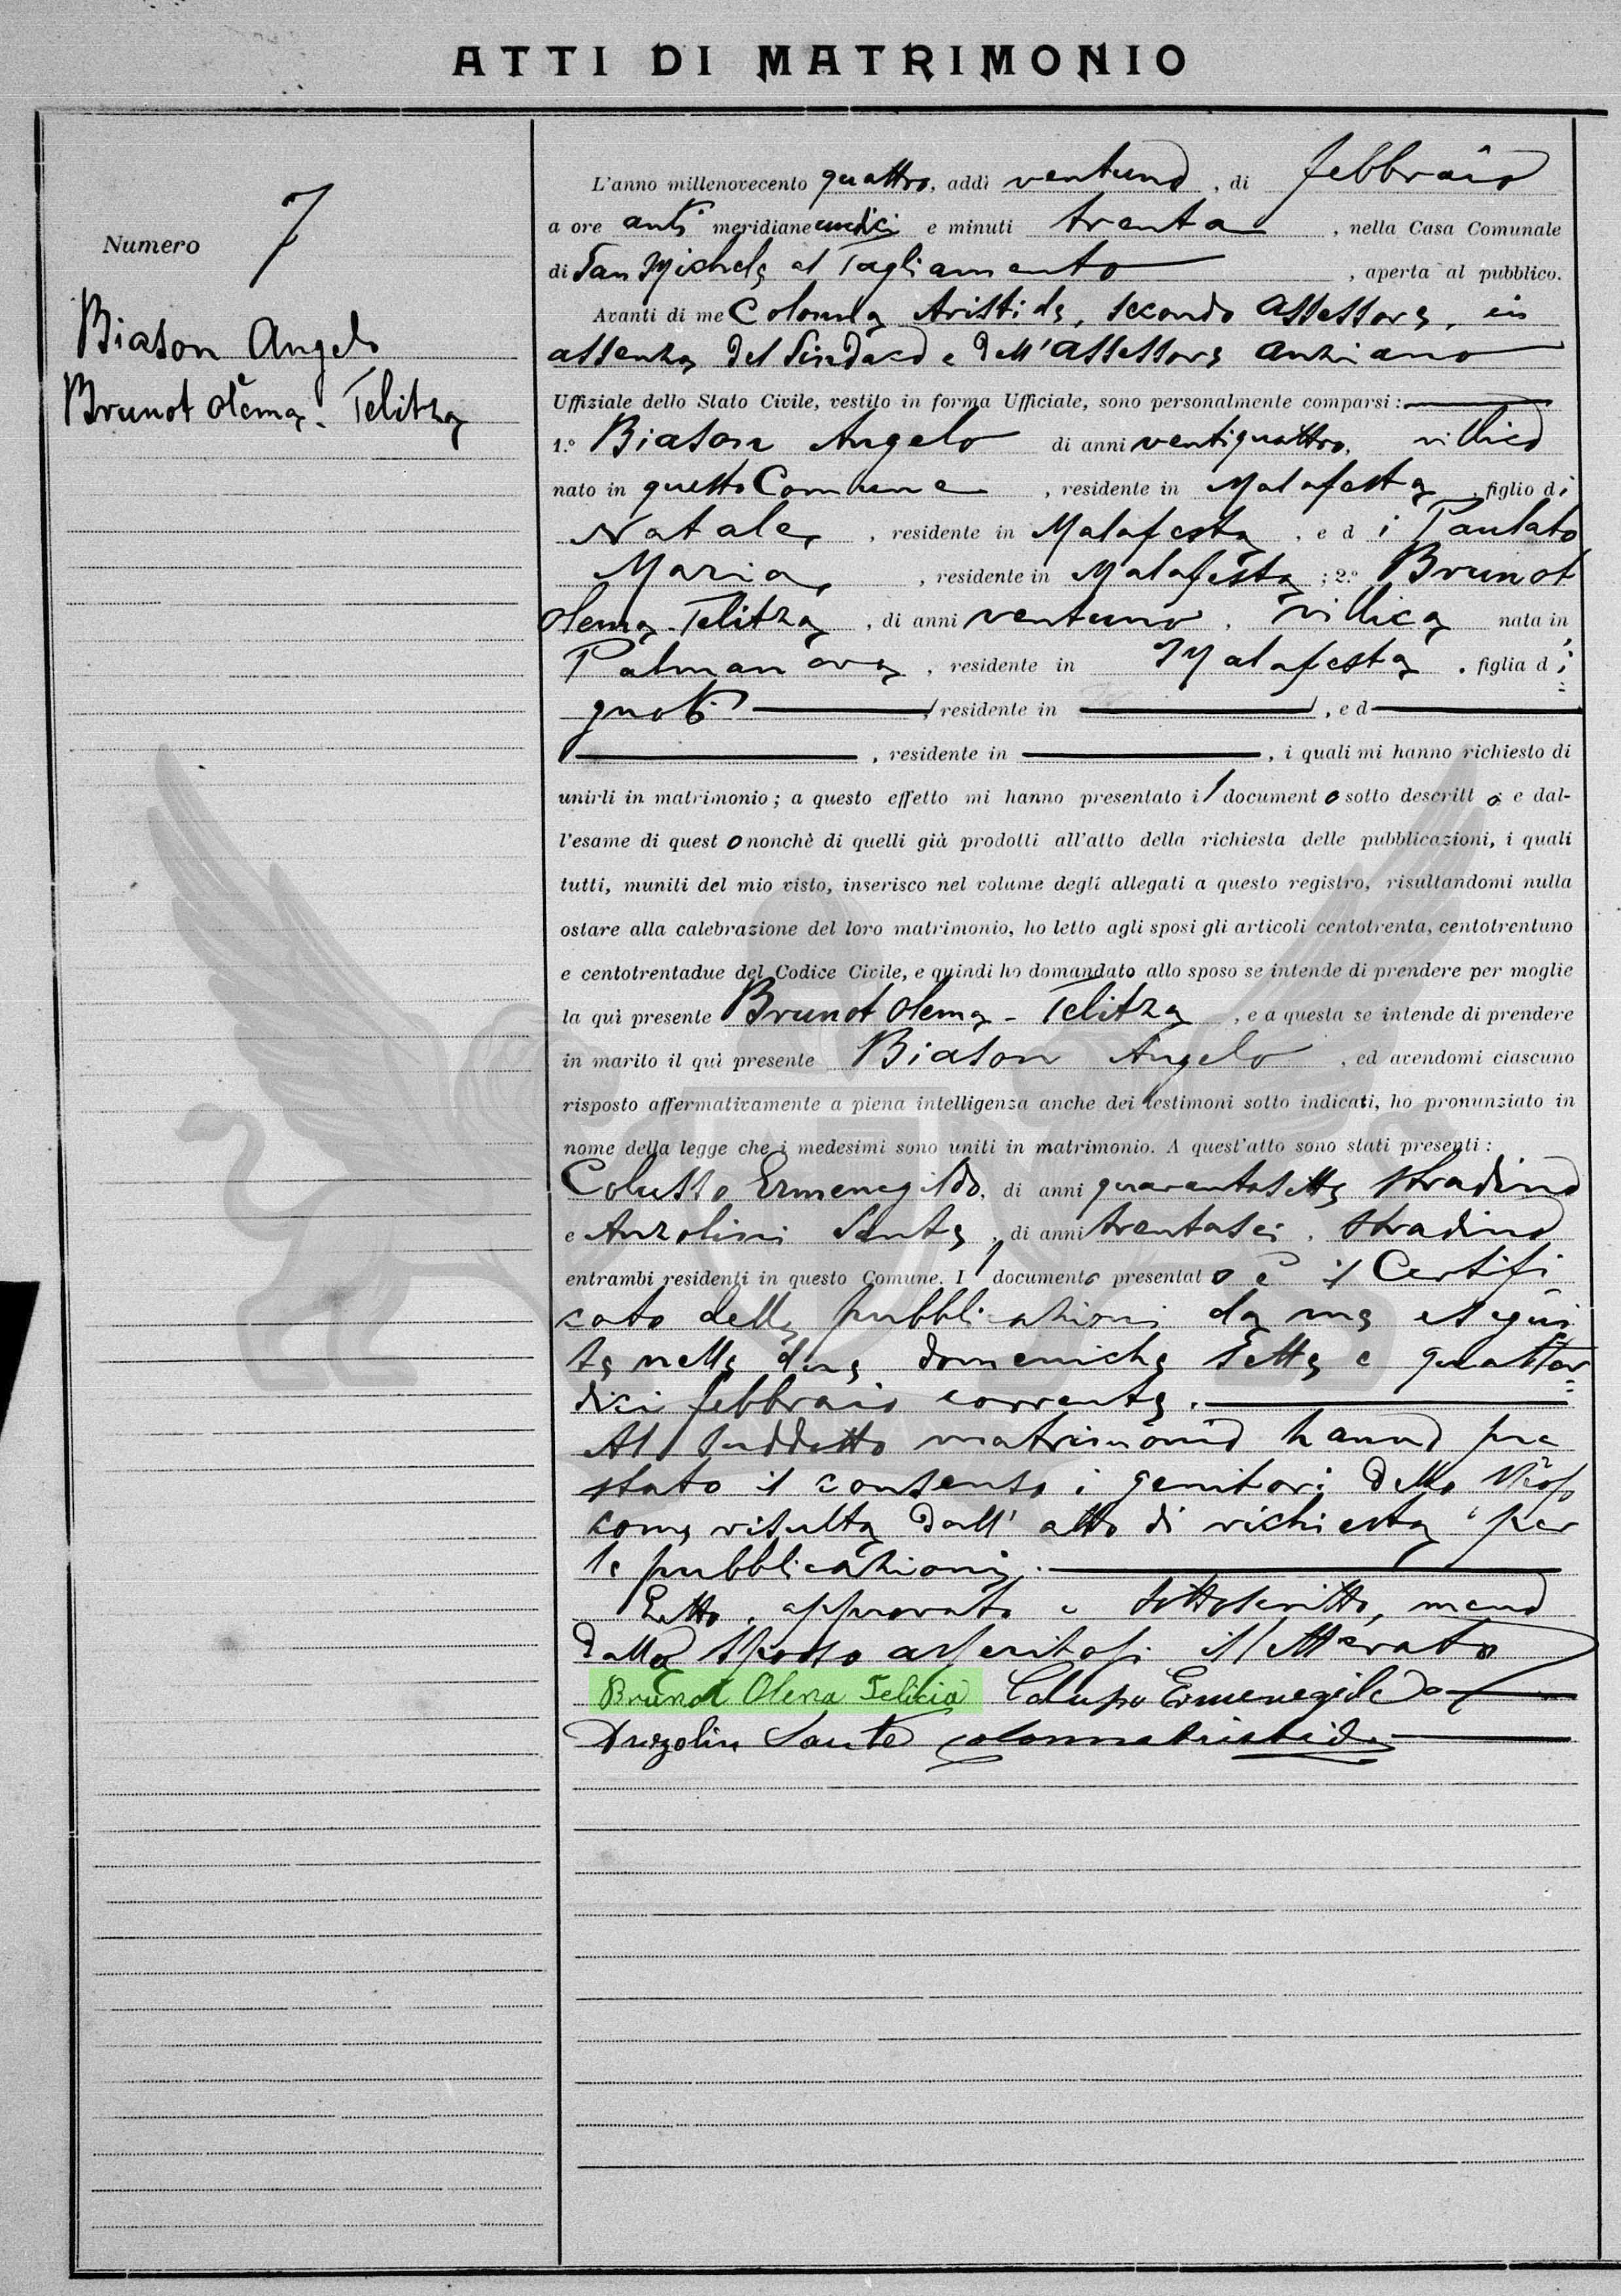 ATTI DI MATRIMONIO
Numero 7
Biason Angelo
Brunot Olema-Telitza
L'anno millenovecento quattro, addì ventuno, di febbraio
a ore anti meridiane undici e minuti trenta, nella Casa Comunale
di San Michele al Tagliamento, aperta al pubblico.
Avanti di me Colonna Aristide, secondo Assessore, in
assenza del Sindaco e dell'Assessore Anziano
Uffiziale dello Stato Civile, vestito in forma Ufficiale, sono personalmente comparsi:
1.º Biason Angelo di anni ventiquattro, villico
nato in questo Comune, residente in Malafesta, figlio di
Natale, residente in Malafesta, e d i Paulato
Maria, residente in Malafesta; 2.º Brunot
Olema-Telitza, di anni ventuno, villica nata in
Palmanova, residente in Malafesta, figlia d i
gnoti, residente in, e d
, residente in, i quali mi hanno richiesto di
unirli in matrimonio; a questo effetto mi hanno presentato il documento sotto descritto; e dal-
l'esame di questo nonchè di quelli già prodotti all'atto della richiesta delle pubblicazioni, i quali
tutti, muniti del mio visto, inserisco nel volume degli allegati a questo registro, risultandomi nulla
ostare alla calebrazione del loro matrimonio, ho letto agli sposi gli articoli centotrenta, centotrentuno
e centotrentadue del Codice Civile, e quindi ho domandato allo sposo se intende di prendere per moglie
la quì presente Brunot Olema-Telitza, e a questa se intende di prendere
in marito il quì presente Biason Angelo, ed avendomi ciascuno
risposto affermativamente a piena intelligenza anche dei testimoni sotto indicati, ho pronunziato in
nome della legge che i medesimi sono uniti in matrimonio. A quest'atto sono stati presenti:
Colusso Ermenegildo, di anni quarantasette stradino
e Anzolini Sante, di anni trentasei, stradino
entrambi residenti in questo Comune. Il documento presentato è il Certifi
cato delle pubblicazioni da me esegui
te nelle due domeniche sette e quattor
dici febbraio corrente.
Al suddetto matrimonio hanno pre
stato il consenso i genitori dello sposo
come risulta dall'atto di richiesta per
le pubblicazioni.
Letto, approvato e sottoscritto, meno
dallo sposo asseritosi illetterato
Brunot Olena Felicia Colusso Ermenegildo
Anzolin Sante Colonna Aristide